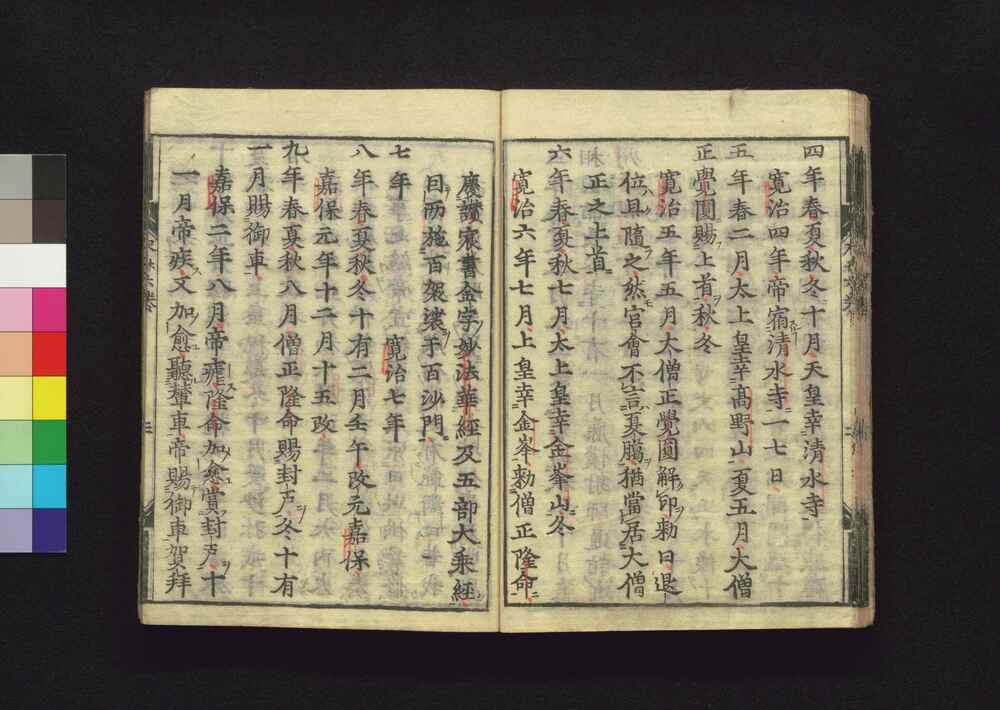 四年春夏秋冬十月天皇幸清水寺
寛治四年帝宿清水寺二七日
五年春二月太上皇幸高野山夏五月大僧
正覺圓賜上首秋冬
寛治五年五月大僧正覺圓解印勅曰退
位且隨之然宮會不言夏臈猶當居大僧
正之上首
六年春夏秋七月太上皇幸金峯山冬
寛治六年七月上皇幸金峯勅僧正隆命
慶讃宸書金字妙法華經及五部大乘經
曰而施百袈裟于百沙門
七年
寛治七年
八年春夏秋冬十有二月壬午改元嘉保
嘉保元年十二月十五改
九年春夏秋八月僧正隆命賜封戸冬十有
一月賜御車
嘉保二年八月帝瘧隆命加愈賞封戸十
一月帝疾又加愈聽輦車帝賜御車賀拜